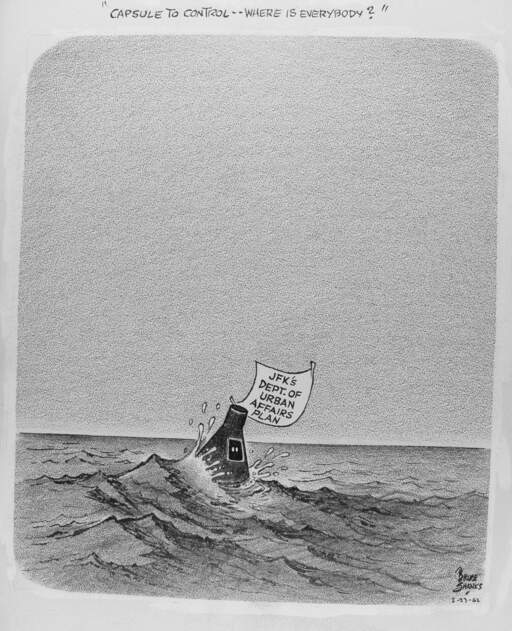 "CAPSULE TO CONTROL--WHERE IS EVERYBODY?"
JFK'S
DEPT. OF
URBAN
AFFAIRS
PLAN
BRUCE
SHANKS
2-23-62